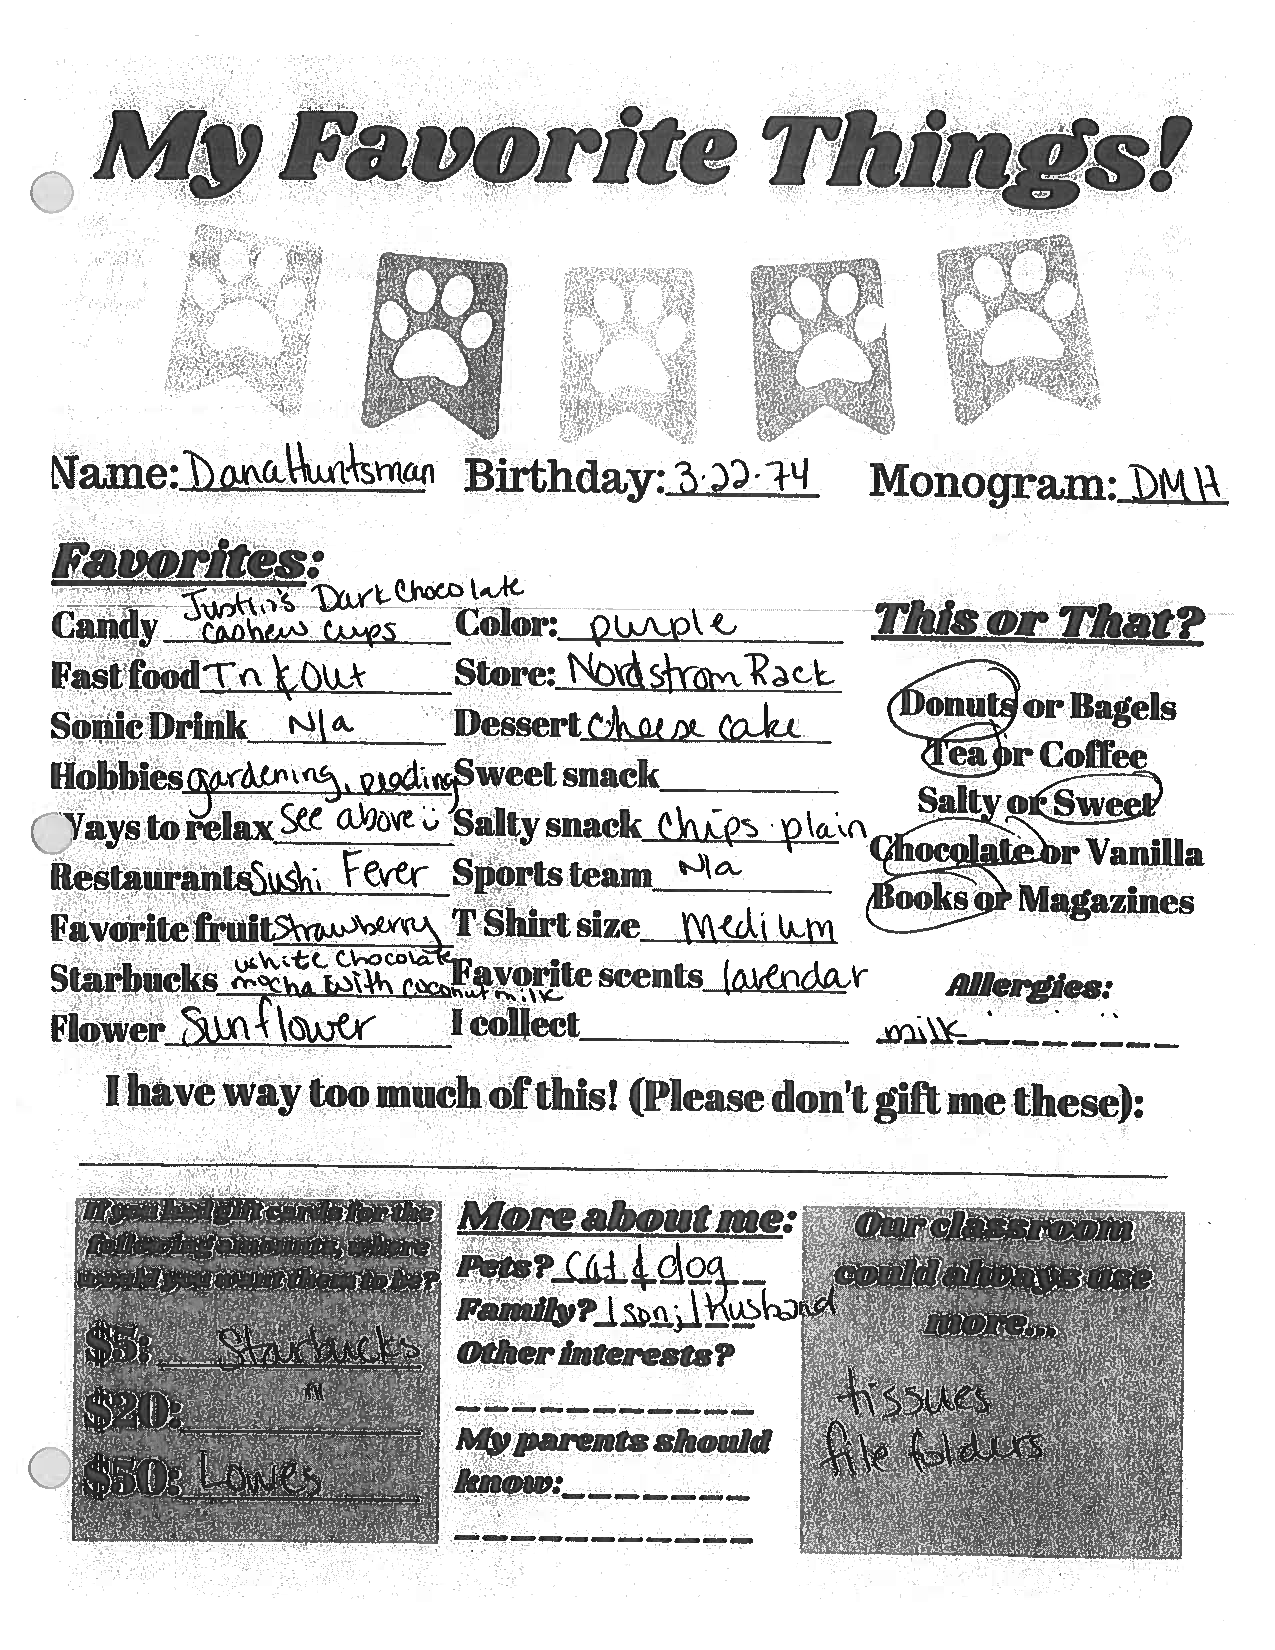 My Favorite Things!
Name: Dana Huntsman Birthday: 3.22.74 Monogram: DMH
Favorites:
Candy Justin's Dark Chocolate
cashew cups
Fast food In & Out
Sonic Drink N/a
Hobbies gardening, reading
Ways to relax see above
Restaurants Sushi Fever
Favorite fruit Strawberry
Starbucks white chocolate
mocha with coconut milk
Flower Sunflower
Color: purple
Store: Nordstrom Rack
Dessert cheese cake
Sweet snack
Salty snack chips plain
Sports team N/a
T Shirt size Medium
Favorite scents lavendar
I collect
This or That?
Donuts or Bagels
Tea or Coffee
Salty or Sweet
Chocolate or Vanilla
Books or Magazines
Allergies:
milk
I have way too much of this! (Please don't gift me these):
If you had gift cards for the
following amounts, where
would you want them to be?
$5: Starbucks
$20: "
$50: Lowes
More about me:
Pets? cat & dog
Family? 1 son; 1 husband
Other interests?
My parents should
know:
Our classroom
could always use
more...
tissues
file folders